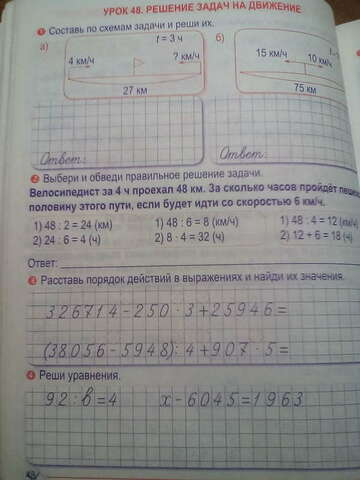 УРОК 48. РЕШЕНИЕ ЗАДАЧ НА ДВИЖЕНИЕ
1 Составь по схемам задачи и реши их.
а) t = 3 ч б)
4 км/ч ? км/ч 15 км/ч 10 км/ч
27 км 75 км
Ответ: Ответ:
2 Выбери и обведи правильное решение задачи.
Велосипедист за 4 ч проехал 48 км. За сколько часов пройдёт
половину этого пути, если будет идти со скоростью 6 км/ч.
1) 48 : 2 = 24 (км) 1) 48 : 6 = 8 (км/ч) 1) 48 : 4 = 12 (км/ч)
2) 24 : 6 = 4 (ч) 2) 8 · 4 = 32 (ч) 2) 12 + 6 = 18 (ч)
Ответ:
3 Расставь порядок действий в выражениях и найди их значения.
326714 - 250 · 3 + 25946 =
(38056 - 5948) : 4 + 907 · 5 =
4 Реши уравнения.
92 : в = 4 х - 6045 = 1963